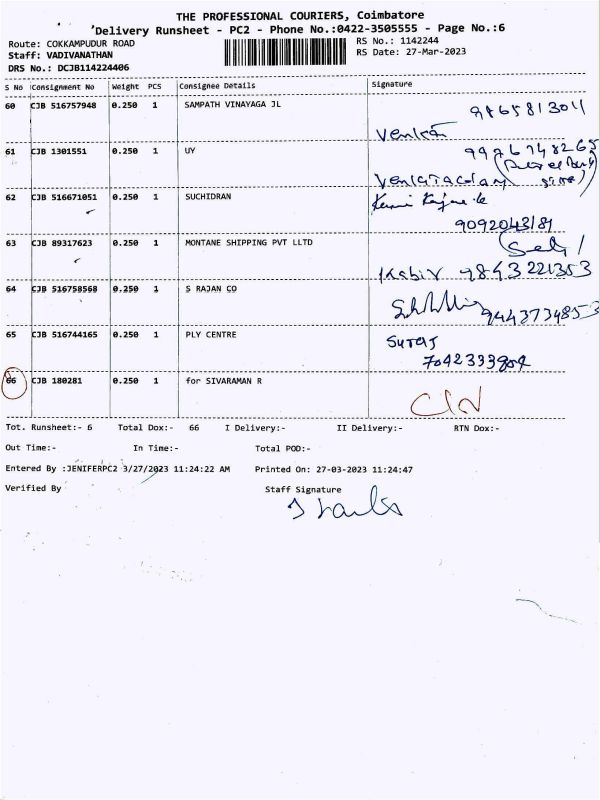 THE PROFESSIONAL COURIERS, Coimbatore
Delivery Runsheet - PC2 - Phone No.:0422-3505555 - Page No.:6
Route: COKKAMPUDUR ROAD
RS No.: 1142244
Staff: VADIVANATHAN
RS Date: 27-Mar-2023
DRS No.: DCJB114224406
S No Consignment No Weight PCS Consignee Details Signature
60 CJB 516757948 0.250 1 SAMPATH VINAYAGA JL 9865813011
Venkat
61 CJB 1301551 0.250 1 UY 9976748265
Venkatachalam
62 CJB 516671051 0.250 1 SUCHIDRAN
9092043181
63 CJB 89317623 0.250 1 MONTANE SHIPPING PVT LLTD
Kabir 9843221353
64 CJB 516758568 0.250 1 S RAJAN CO
9443734853
65 CJB 516744165 0.250 1 PLY CENTRE Suraj
7042333804
66 CJB 180281 0.250 1 for SIVARAMAN R
Tot. Runsheet:- 6 Total Dox:- 66 I Delivery:- II Delivery:- RTN Dox:-
Out Time:- In Time:- Total POD:-
Entered By :JENIFERPC2 3/27/2023 11:24:22 AM Printed On: 27-03-2023 11:24:47
Verified By Staff Signature